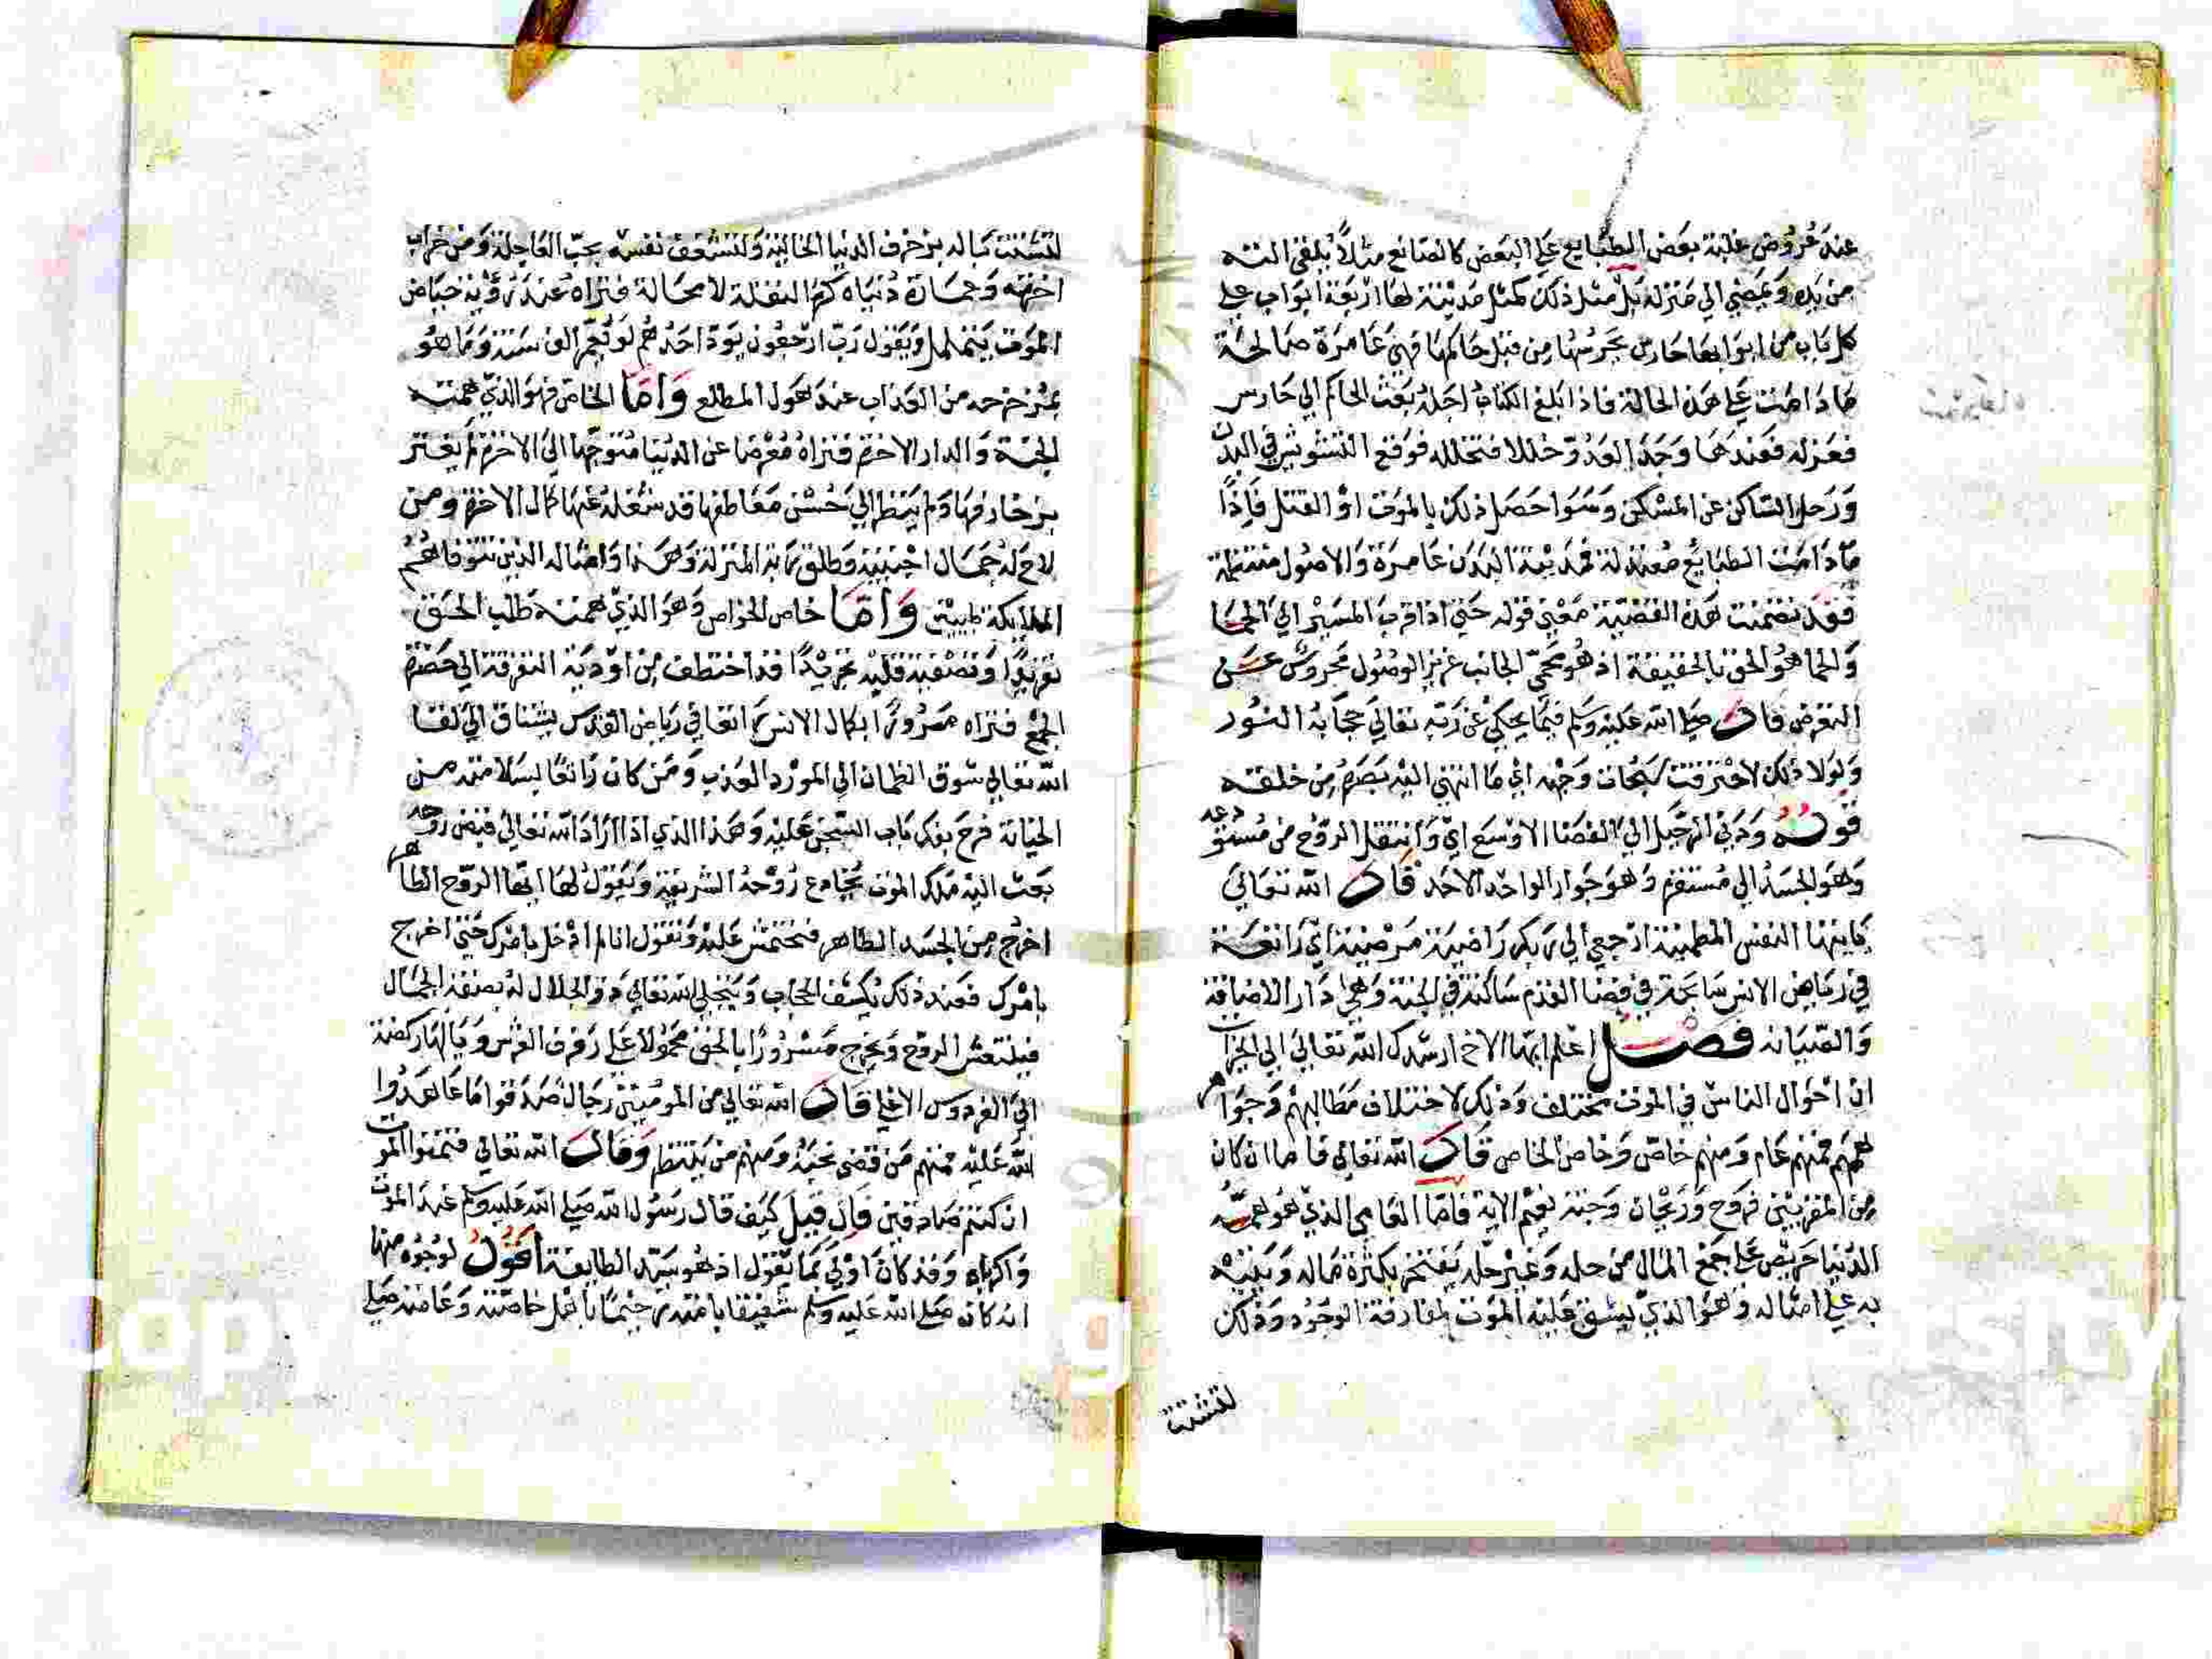 عند عروض غلبة بعض الطبايع علي البعض كالصانع مثلا يلقي الته
من يده ويمضي الي منزله بل مثل ذلك كمثل مدينة لها اربعة ابواب علي
كل باب من ابوابها حارس يحرسها من قبل حاكمها فهي عامرة صالحة
ما دامت علي هذه الحالة فاذا بلغ الكتاب اجله بعث الحاكم الي حارس
فعزله فعندها وجد العدو خللا فتخلله فوقع التشويش في البلد
ورحل الساكن عن المسكن وسوا حصل ذلك بالموت او القتل فاذا
ما دامت الطبايع معتدلة فمدينة البدن عامرة والاصول منتظمة
فقد تضمنت هذه القضية معني قوله حتي اذا قرب المسير الي الحما
والحما هو الحق بالحقيقة اذ هو محمي الجانب عزيز الوصول محروس عن
التعرض قال صلي الله عليه وسلم فيما يحكي عن ربه تعالي حجابه النور
ولولا ذلك لاحترقت سبحات وجهه اي ما انتهي اليه بصره من خلقه
قوله ودني الرحيل الي الفضا الاوسع اي وانتقل الروح من مستودعه
وهو الجسد الي مستقره وهو جوار الواحد الاحد قال الله تعالي
يايتها النفس المطمينة ارجعي الي ربك راضية مرضية اي راتعة
في رياض الانس سابحة في فضا القدم ساكنة في الجنة وهي دار الاضافة
والصيانة فصل اعلم ايها الاخ ارشدك الله تعالي الي الخيرات
ان احوال الناس في الموت مختلف وذلك لاختلاف مطالبهم وجواهر
هممهم فمنهم عام ومنهم خاص وخاص الخاص قال الله تعالي فاما ان كان
من المقربين فروح وريحان وجنة نعيم الاية فاما العامي الذي هو همته
الدنيا حريص علي جمع المال من حله وغير حله يفتخر بكثرة ماله ويتيه
به علي امثاله وهو الذي يشق عليه الموت لمفارقة الوجود وذلك
لتشتت
لتشتت باله بزخرف الدنيا الخالية ولتشعف نفسه بحب العاجلة ومن خراب
اخرته وعمارة دنياه كره النقلة لا محالة فتراه عند رؤية حياض
الموت يتململ ويقول رب ارجعون يود احدهم لو يعمر الف سنة وما هو
بمزحزحه من العذاب عند هول المطلع واما الخاص فهو الذي همته
الجنة والدار الاخرة فتراه معرضا عن الدنيا متوجها الي الاخرة لم يغتر
بزخارفها ولم ينظر الي حسن معاطفها قد شغله عنها كمال الاخرة ومن
لاح له جمال اجنبية وطلق ربة المنزلة وهذا وامثاله الذين تتوفاهم
الملايكة طيبين واما خاص الخواص وهو الذي همته طلب الحق
تفريدا وتصفية قلبه تجريدا قد اختطف من اودية التفرقة الي حضرة
الجمع فتراه مسرورا بكمال الانس راتعا في رياض القدس يشتاق الي لقا
الله تعالي شوق الظمان الي المورد العذب ومن كان راتعا بسلامته من
الخيانة فرح بفك باب السجن عليه وهذا الذي اذا اراد الله تعالي قبض روحه
بعث اليه ملك الموت روحه الشريفة ويقول لها ايتها الروح الطاهر
اخرج من الجسد الطاهر فتحتمش عليه وتقول انا لم ادخل بامرك حتي اخرج
بامرك فعند ذلك يكشف الحجاب ويتجلي الله تعالي ذو الجلال له بصفة الجمال
فينتعش الروح ويخرج مسرورا بالحق محمولا علي رفرف العرش
الي الفردوس الاعلي قال الله تعالي من المومنين رجال صدقوا ما عاهدوا
الله عليه فمنهم من قضي نحبه ومنهم من ينتظر وقال الله تعالي فتمنوا الموت
ان كنتم صادقين فان قيل كيف قال رسول الله صلي الله عليه وسلم عند الموت
واكرباه وقد كان اولي بما يقول اذ هو سيد الطايفة اقول لوجوه منها
انه كان صلي الله عليه وسلم شفيقا بامته رحيما باهل خاصته وعامته صلي